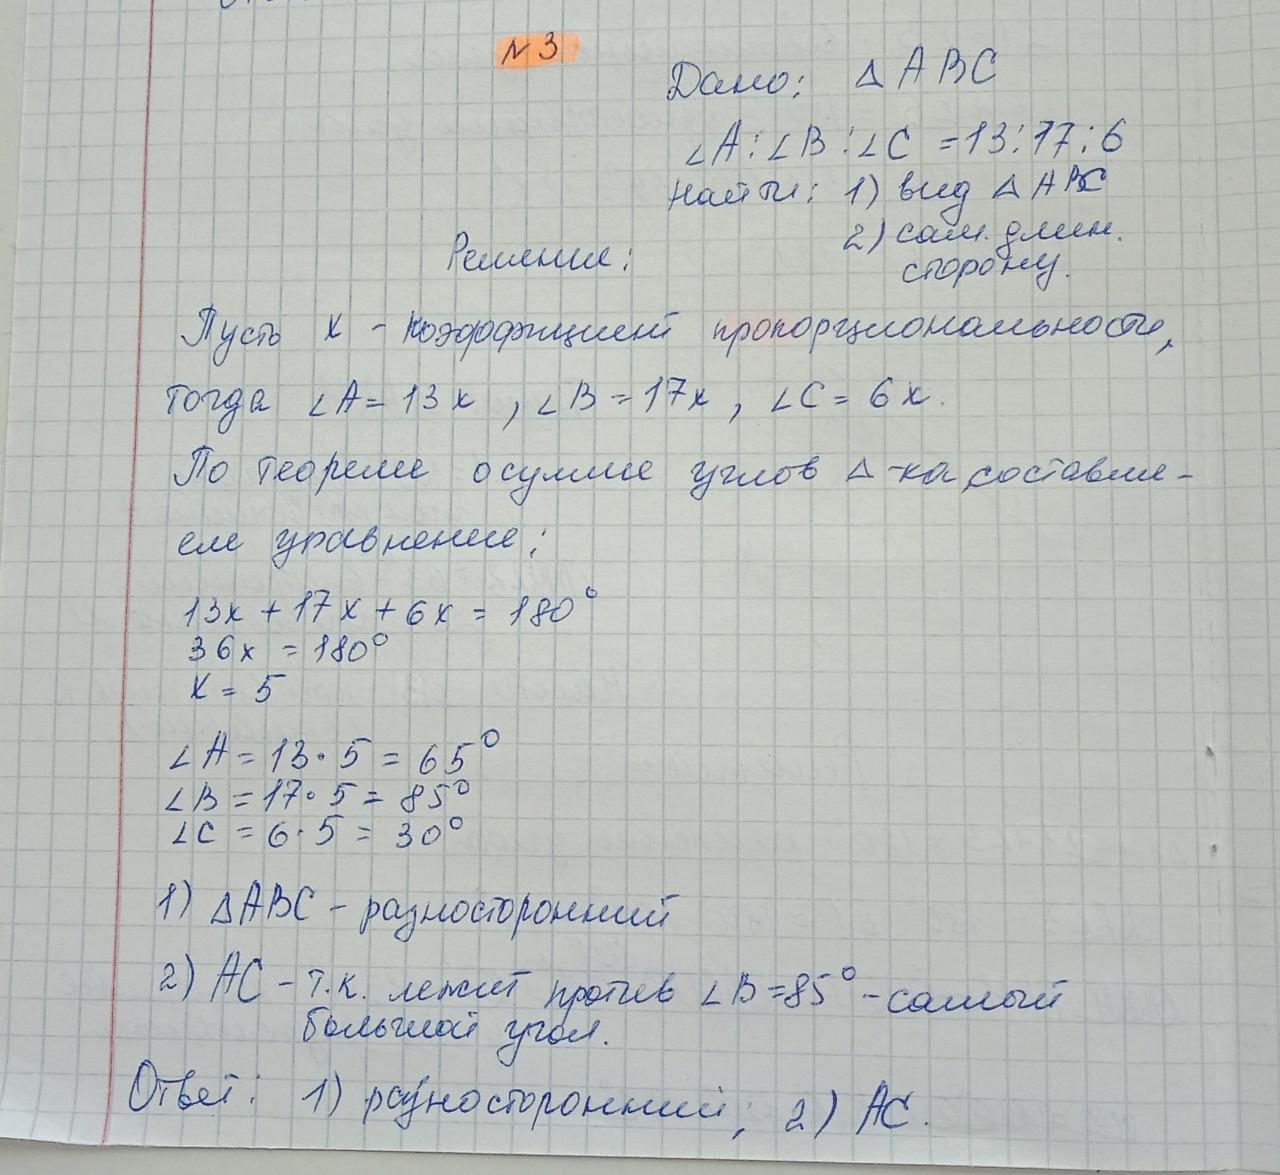 № 3
Дано: △ ABC
∠A : ∠B : ∠C = 13 : 17 : 6
Найти: 1) вид △ ABC
2) сам. длин.
сторону.
Решение:
Пусть x - коэффициент пропорциональности,
тогда ∠A = 13x , ∠B = 17x , ∠C = 6x.
По теореме о сумме углов △-ка, составля-
ем уравнение:
13x + 17x + 6x = 180°
36x = 180°
x = 5
∠A = 13 · 5 = 65°
∠B = 17 · 5 = 85°
∠C = 6 · 5 = 30°
1) △ABC - разносторонний
2) AC - т.к. лежит против ∠B = 85° - самый
большой угол.
Ответ: 1) разносторонний; 2) AC.